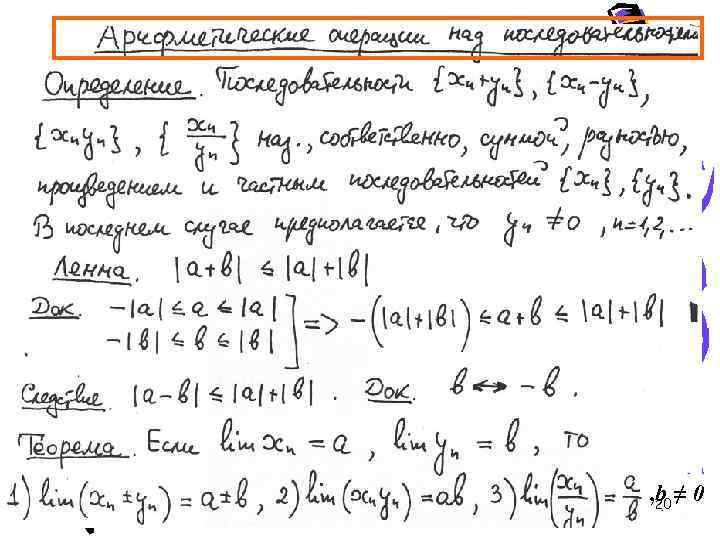 Арифметические операции над последовательностями
Определение. Последовательности {xₙ+yₙ}, {xₙ-yₙ},
{xₙyₙ}, {xₙ/yₙ} наз., соответственно, суммой, разностью,
произведением и частным последовательностей {xₙ}, {yₙ}.
В последнем случае предполагается, что yₙ ≠ 0, n=1,2,...
Лемма. |a+b| ≤ |a|+|b|
Док. -|a| ≤ a ≤ |a|
-|b| ≤ b ≤ |b| ] => -(|a|+|b|) ≤ a+b ≤ |a|+|b|
Следствие |a-b| ≤ |a|+|b|. Док. b ↔ -b.
Теорема. Если lim xₙ = a, lim yₙ = b, то
1) lim(xₙ ± yₙ) = a ± b, 2) lim(xₙyₙ) = ab, 3) lim(xₙ/yₙ) = a/b, b ≠ 0
20